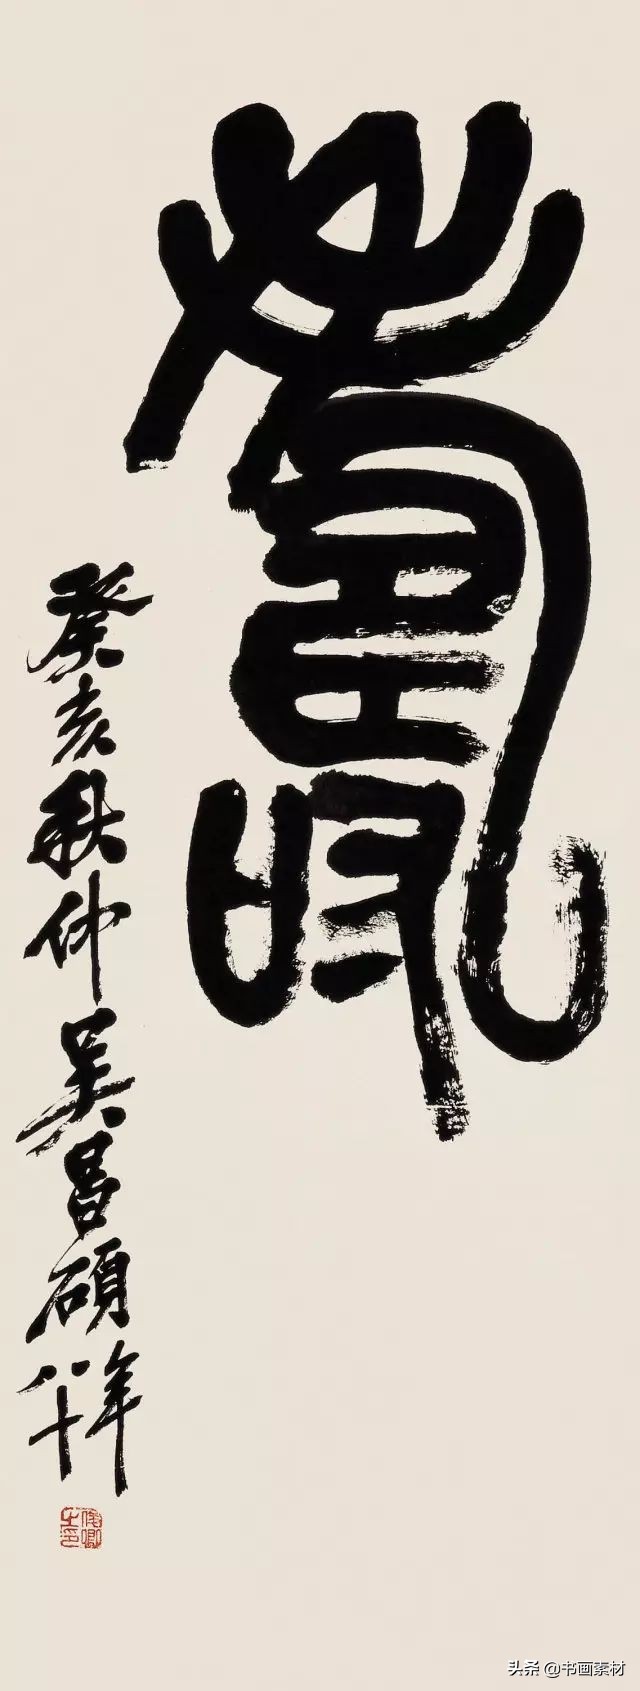 壽
癸亥秋仲吴昌碩年八十
俊卿之印
头条 @书画素材